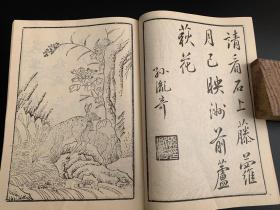 請看石上藤蘿
月已映洲前蘆
荻花
孫胤奇